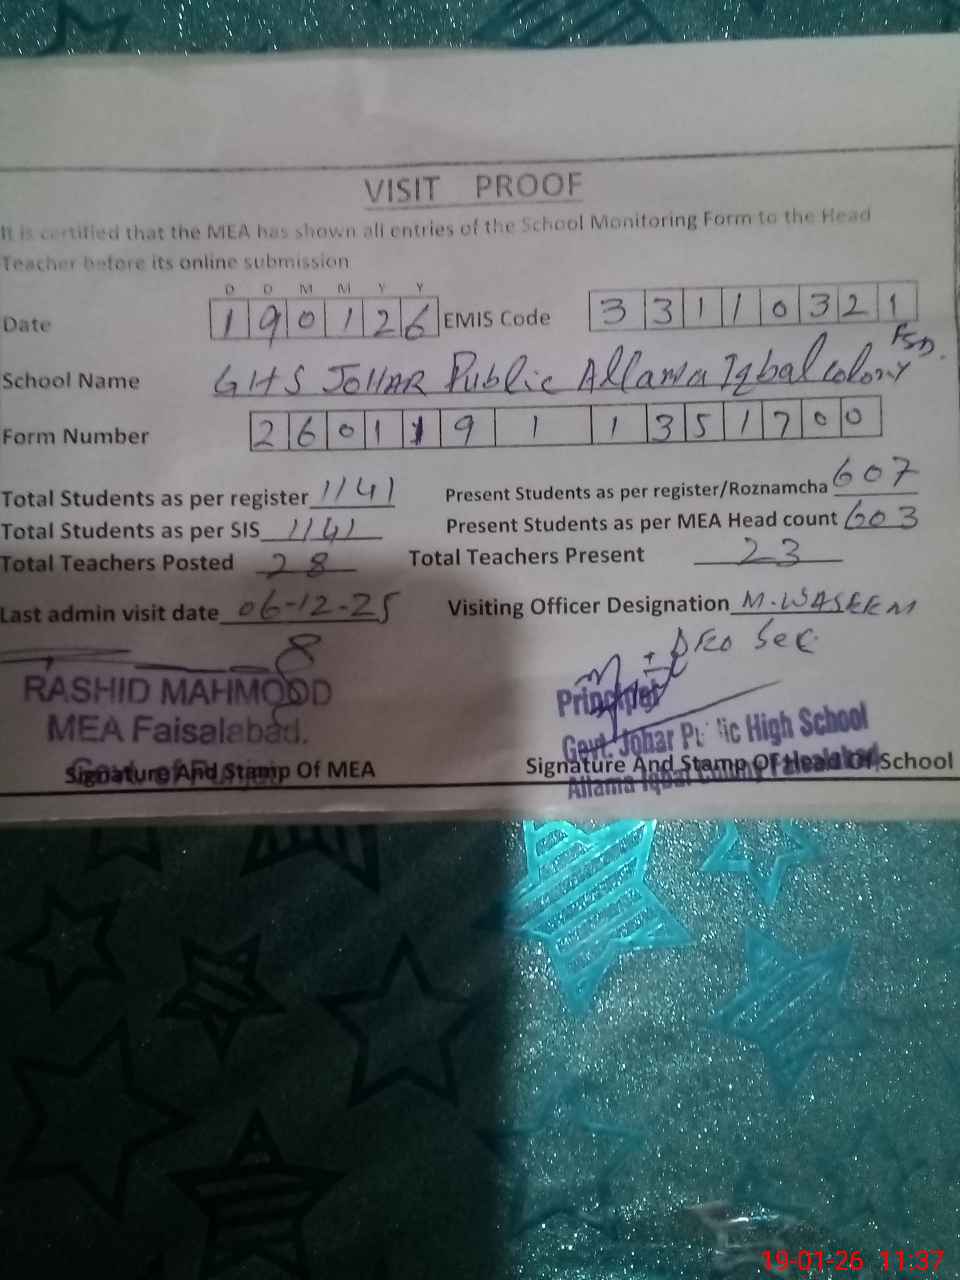 VISIT PROOF
It is certified that the MEA has shown all entries of the School Monitoring Form to the Head
Teacher before its online submission
D D M M Y Y
Date 1 9 0 1 2 6 EMIS Code 3 3 1 1 0 3 2 1
School Name GHS JOHAR Public Allama Iqbal colony FSD.
Form Number 2 6 0 1 1 9 1 1 3 5 1 7 0 0
Total Students as per register 1141 Present Students as per register/Roznamcha 607
Total Students as per SIS 1141 Present Students as per MEA Head count 603
Total Teachers Posted 28 Total Teachers Present 23
Last admin visit date 06-12-25 Visiting Officer Designation M. WASEEM
Sec
RASHID MAHMOOD
MEA Faisalabad.
Principal
Govt. Johar Public High School
Allama Iqbal Colony Faisalabad
Signature And Stamp Of MEA Signature And Stamp Of Head Of School
19-01-26 11:37